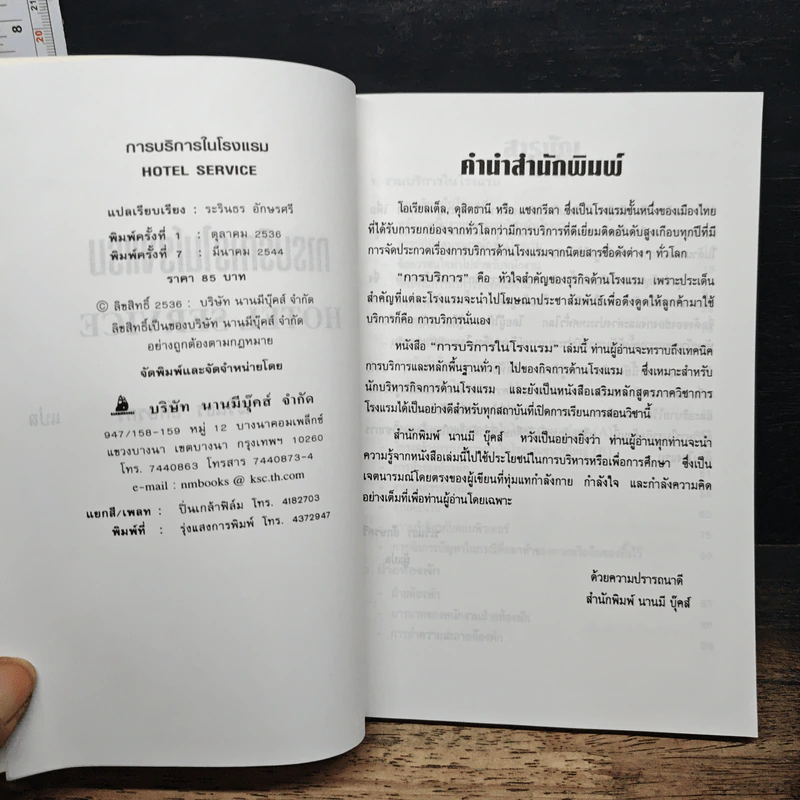 การบริการในโรงแรม
HOTEL SERVICE
แปลเรียบเรียง : ระรินธร อักษรศรี
พิมพ์ครั้งที่ 1 : ตุลาคม 2536
พิมพ์ครั้งที่ 7 : มีนาคม 2544
ราคา 85 บาท
© ลิขสิทธิ์ 2536 : บริษัท นานมีบุ๊คส์ จำกัด
ลิขสิทธิ์เป็นของบริษัท นานมีบุ๊คส์ จำกัด
อย่างถูกต้องตามกฎหมาย
จัดพิมพ์และจัดจำหน่ายโดย
บริษัท นานมีบุ๊คส์ จำกัด
947/158-159 หมู่ 12 บางนาคอมเพล็กซ์
แขวงบางนา เขตบางนา กรุงเทพฯ 10260
โทร. 7440863 โทรสาร 7440873-4
e-mail : nmbooks @ ksc.th.com
แยกสี/เพลท : ปิ่นเกล้าฟิล์ม โทร. 4182703
พิมพ์ที่ : รุ่งแสงการพิมพ์ โทร. 4372947
คำนำสำนักพิมพ์
โอเรียลเต็ล, ดุสิตธานี หรือ แชงกรีลา ซึ่งเป็นโรงแรมชั้นหนึ่งของเมืองไทย
ที่ได้รับการยกย่องจากทั่วโลกว่ามีการบริการที่ดีเยี่ยมติดอันดับสูงเกือบทุกปีที่มี
การจัดประกวดเรื่องการบริการด้านโรงแรมจากนิตยสารชื่อดังต่างๆ ทั่วโลก
"การบริการ" คือ หัวใจสำคัญของธุรกิจด้านโรงแรม เพราะประเด็น
สำคัญที่แต่ละโรงแรมจะนำไปโฆษณาประชาสัมพันธ์เพื่อดึงดูดให้ลูกค้ามาใช้
บริการก็คือ การบริการนั่นเอง
หนังสือ "การบริการในโรงแรม" เล่มนี้ ท่านผู้อ่านจะทราบถึงเทคนิค
การบริการและหลักพื้นฐานทั่วๆ ไปของกิจการด้านโรงแรม ซึ่งเหมาะสำหรับ
นักบริหารกิจการด้านโรงแรม และยังเป็นหนังสือเสริมหลักสูตรภาควิชาการ
โรงแรมได้เป็นอย่างดีสำหรับทุกสถาบันที่เปิดการเรียนการสอนวิชานี้
สำนักพิมพ์ นานมี บุ๊คส์ หวังเป็นอย่างยิ่งว่า ท่านผู้อ่านทุกท่านจะนำ
ความรู้จากหนังสือเล่มนี้ไปใช้ประโยชน์ในการบริหารหรือเพื่อการศึกษา ซึ่งเป็น
เจตนารมณ์โดยตรงของผู้เขียนที่ทุ่มแทกำลังกาย กำลังใจ และกำลังความคิด
อย่างเต็มที่เพื่อท่านผู้อ่านโดยเฉพาะ
ด้วยความปรารถนาดี
สำนักพิมพ์ นานมี บุ๊คส์